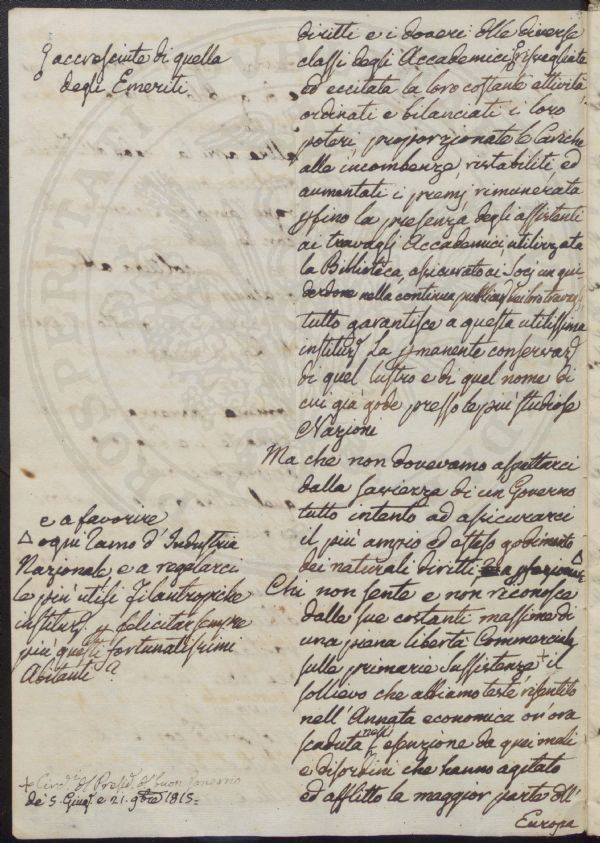 diritti e i doveri delle diverse
classi degli Accademici risvegliata
ed eccitata la loro costante attività,
ordinati e bilanciati i loro
poteri, proporzionate le cariche
alle incombenze, ristabiliti, ed
aumentati i premj, rimunerata
pfino la presenza degli assistenti
ai travagli Accademici, utilizzata
la Biblioteca, assicurato ai Socj un gui
derdone nella continua dei loro
tutto garantisce a questa utilissima
instituz. La pmanente conservaz.
di quel lustro e di quel nome di
cui già gode presso le più studiose
Nazioni
Ma che non dovevamo aspettarci
dalla saviezza di un Governo
tutto intento ad assicurarci
il più ampio ed esteso godimento Δ
dei naturali diritti
Chi non sente e non riconosce
dalle sue costanti massime di
una piena libertà Commerciale
sulle primarie sussistenze + il
sollievo che abbiamo testè risentito
nell'Annata economica or'ora
scaduta nell' esenzione da quei mali
e disordini che hanno agitato
ed afflitto la maggior parte dell'
Europa
accresciute di quella
degli Emeriti
e a favorire
Δ ogni ramo d'Industria
Nazionale, e a regolarci
le più utili filantropiche
instituz. p felicitar sempre
più questi fortunatissimi
Abitanti?
+ del buon Governo
de' 5. Giug. e 21. 9bre 1815=